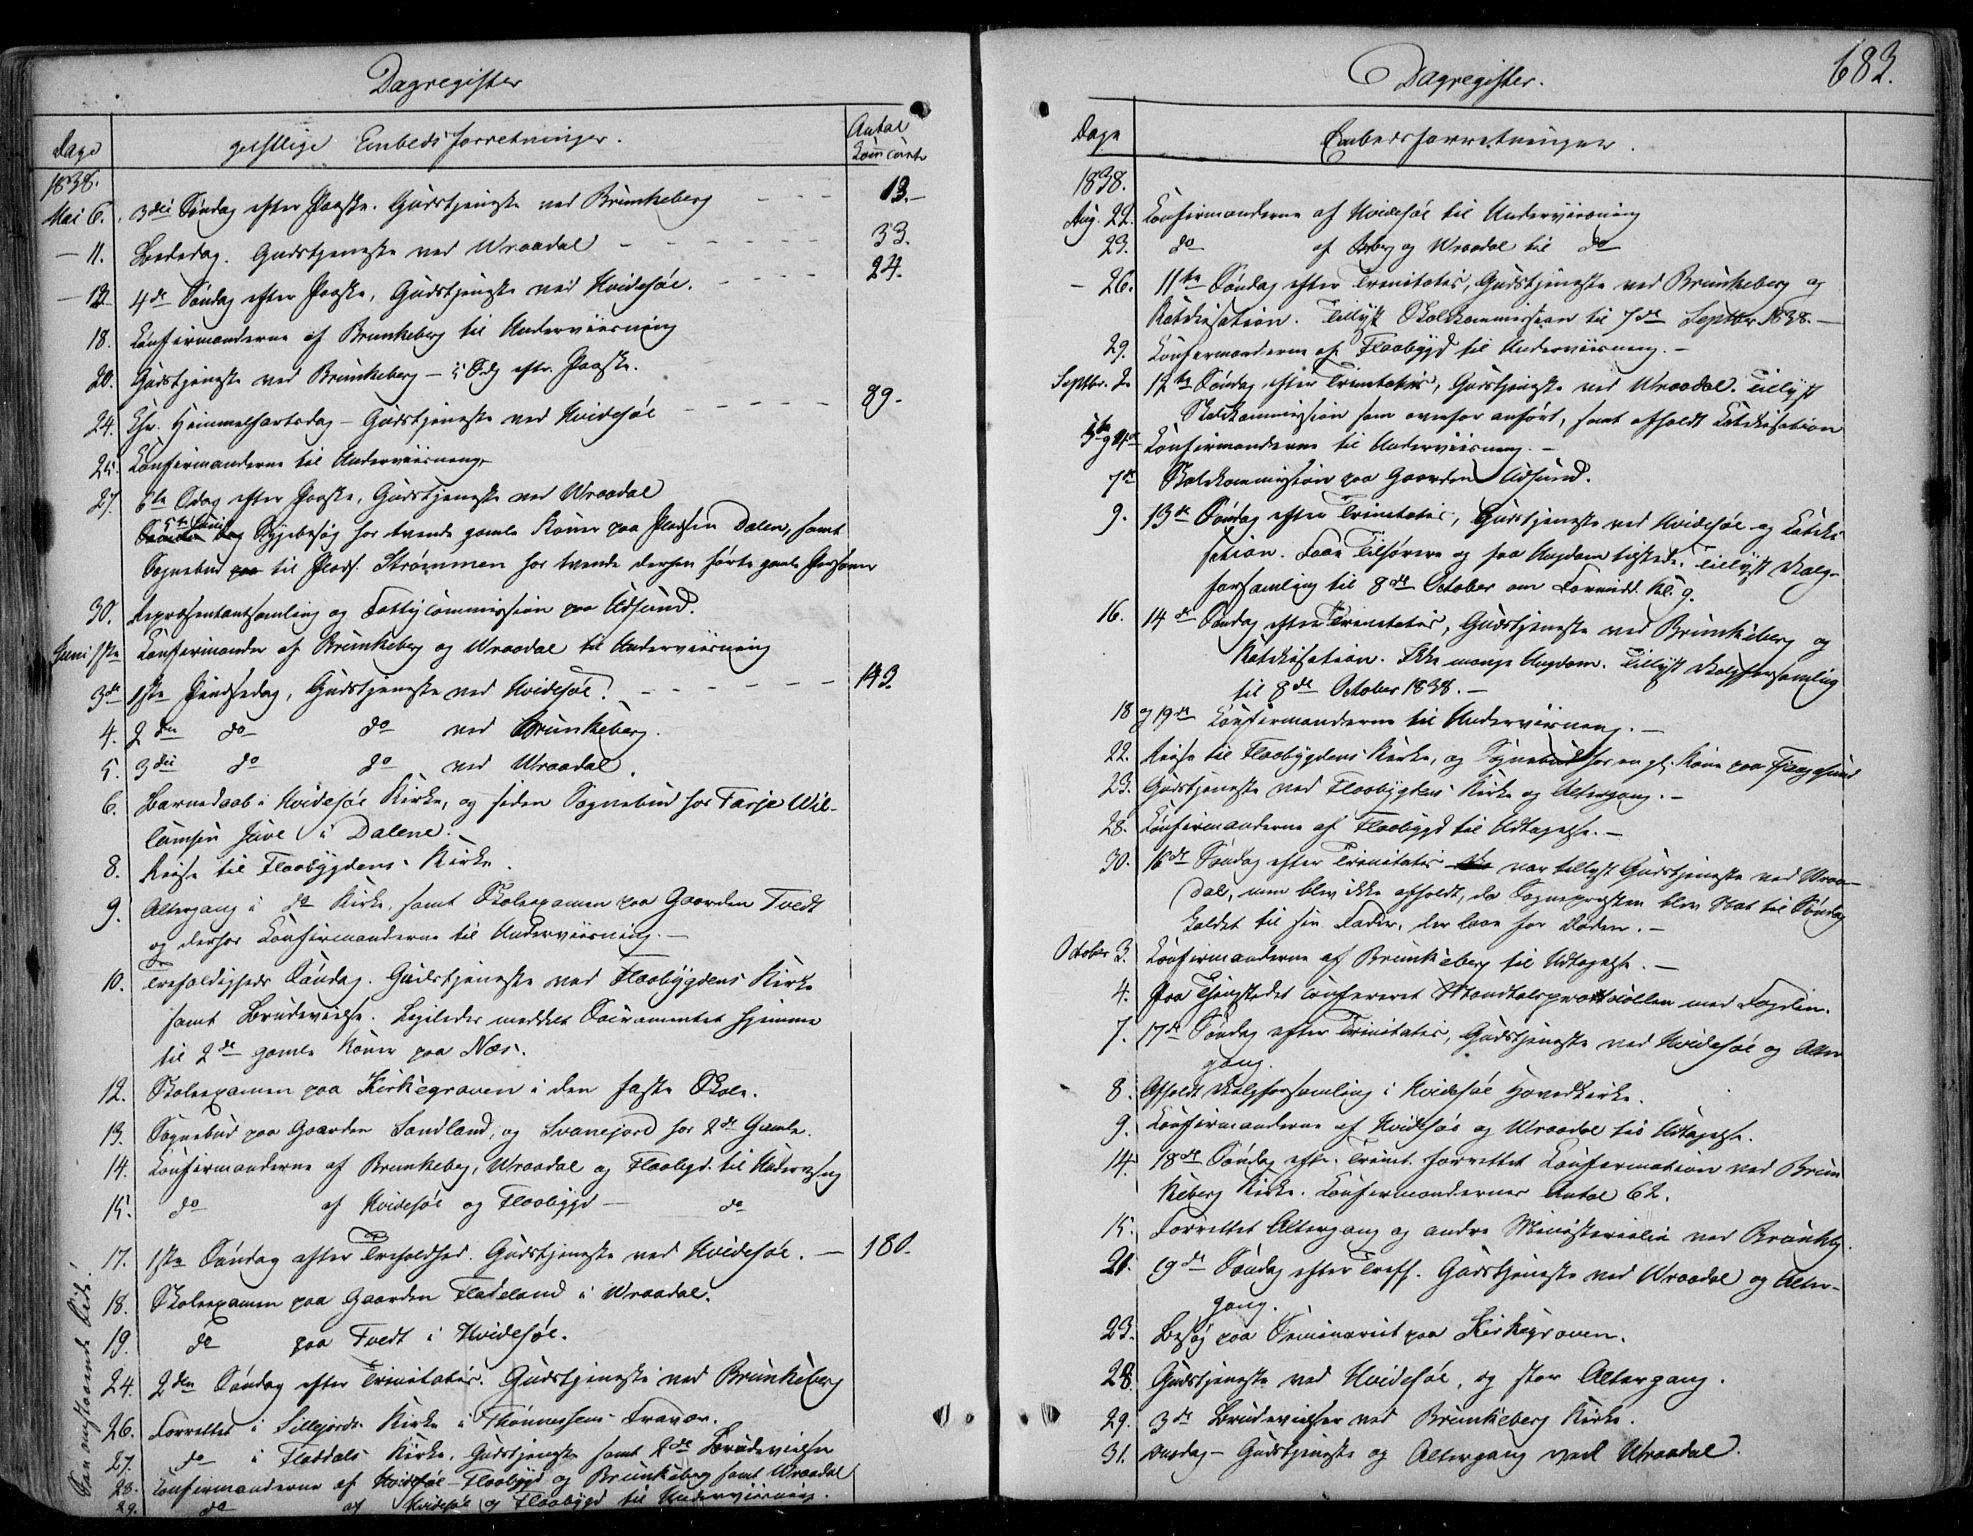 Dagregister
Dage
geistlige Embedsforretninger.
Antal
Comunicante
1838.
Mai 6. 3die Søndag efter Paaske. Gudstjeneste ved Brunkeberg 13.
11. Bededag. Gudstjeneste ved Wraadal 33.
13 4de Søndag efter Paaske, Gudstjeneste ved Hvidesøe. 24.
18. Confirmanderne af Brunkeberg til Underviisning
20. Gudstjeneste ved Brunkeberg – 5 Sdg eftr. Paaske.
24. Chr. Himmelfartsdag – Gudstjeneste ved Hvidesøe 89.
25. Confirmanderne til Underviisning
27. 6te Sdag efter Paaske, Gudstjeneste ved Wraadal
5te Juni Sygebesøg hos tvende gamle Koner paa Pladsen Dalen, samt
Sognebud til Plads. Strømmen hos tvende dersen førte gamle Personer
30. Repræsentantsamling og Fattigcommission paa Udsund.
Juni 1ste Confirmander af Brunkeberg og Wraadal til Underviisning
3de 1ste Pindsedag, Gudstjeneste ved Hvidesøe. 143.
4. 2den do do ved Brunkeberg.
5. 3die do do ved Wraadal.
6. Barnedaab i Hvidesøe Kirke, og siden Sognebud hos Tarje Wil-
lumsen Juve i Dalene.
8. Reise til Flaabygdens Kirke.
9. Altergang i do Kirke, samt Skoleexamen paa Gaarden Tvedt
og derhos Confirmanderne til Underviisning. –
10. Trefoldigheds Søndag. Gudstjeneste ved Flaabygdens Kirke
samt Brudevielse. Ligeledes meddelt Sacramentet hjemme
til 2de gamle Koner paa Næs.
12. Skoleexamen paa Kirkegraven i den faste Skole.
13. Sognebud paa Gaarden Sandland, og Svanejord hos 2de Gamle.
14. Confirmanderne af Brunkeberg, Wraadal og Flaabgd. til Undervsng
15. do af Hvidesøe og Flaabygd – do
17. 1ste Søndag efter Trefoldhed. Gudstjeneste ved Hvidesøe. – 180.
18. Skoleexamen paa Gaarden Fladeland i Wraadal.
19. do paa Tvedt i Hvidesøe.
24. 2den Søndag efter Trinitatis. Gudstjeneste ved Brunkeberg
26. Forrettet i Sillejords Kirke i Thønnessens Fravær.
27. do i Flatdals Kirke, Gudstjeneste samt 2de Brudevielser
28. Confirmanderne af Hvidesøe Flaabygd og Brunkeberg samt Wraadal
29. do af Hvidesøe og Flaabygd til Underviisning.
Dagregister.
683.
Dage
Embedsforretninger.
1838.
Aug. 22. Confirmanderne af Hvidesøe til Underviisning
23. do af Bberg og Wraadal til do
26. 11te Søndag efter Trinitatis, Gudstjeneste ved Brunkeberg og
Katekisation. Tillyst Skolekommission til 7de Septbr 1838. –
29. Confirmanderne af Flaabygd til Underviisning. –
Septbr. 2. 12te Søndag efter Trinitatis, Gudstjeneste ved Wraadal. Tillyst
Skolekommission som ovenfor anført, samt afholdt Catekisation
3die og 4de Confirmanderne til Underviisning. –
7de Skolekommission paa Gaarden Udsund.
9. 13de Søndag efter Trinitatis, Gudstjeneste ved Hvidesøe og Cateki-
sation. Faae Tilhørere og faa Ungdom tilstede. Tillyst Valg-
forsamling til 8de October om Formidd. Kl. 9.
16. 14de Søndag efter Trinitatis, Gudstjeneste ved Brunkeberg og
Katekisation. Ikke mange Ungdom. Tillyst Valgforsamling
til 8de October 1838. –
18 og 19de Confirmanderne til Underviisning. –
22. Reise til Flaabygdens Kirke, og Sognebud hos en gl. Kone paa Fjaagesund
23. Gudstjeneste ved Flaabygdens Kirke og Altergang. –
28. Confirmanderne af Flaabygd til Udtagelse. –
30. 16de Søndag efter Trinitatis var tillyst Gudstjeneste ved Wraa-
dal, men blev ikke afholdt, da Sognepræsten blev Nat til Søndag
kaldet til sin Fader, der laae for Døden. –
October 3. Confirmanderne af Brunkeberg til Udtagelse. –
4. Paa Thingstedet confereret Mandtalsprotocollen med Fogden.
7. 17de Søndag efter Trinitatis, Gudstjeneste ved Hvidesøe og Alter-
gang.
8. Afholdt Valgforsamling i Hvidesøe Hovedkirke.
9. Confirmanderne af Hvidesøe og Wraadal til Udtagelse.
14. 18de Søndag eftr. Trinit. forrettet Confirmation ved Brun-
keberg Kirke. Confirmandernes Antal 62.
15. Forrettet Altergang og andre Ministerialia ved Brunkbg.
21. 19de Søndag efter Tref. Gudstjeneste ved Wraadal og Alter-
gang.
23. Besøg paa Seminariet paa Kirkegraven.
28. Gudstjeneste ved Hvidesøe, og stor Altergang.
29. 3de Brudevielser ved Brunkeberg Kirke.
31. Onsdag – Gudstjeneste og Altergang ved Wraadal.